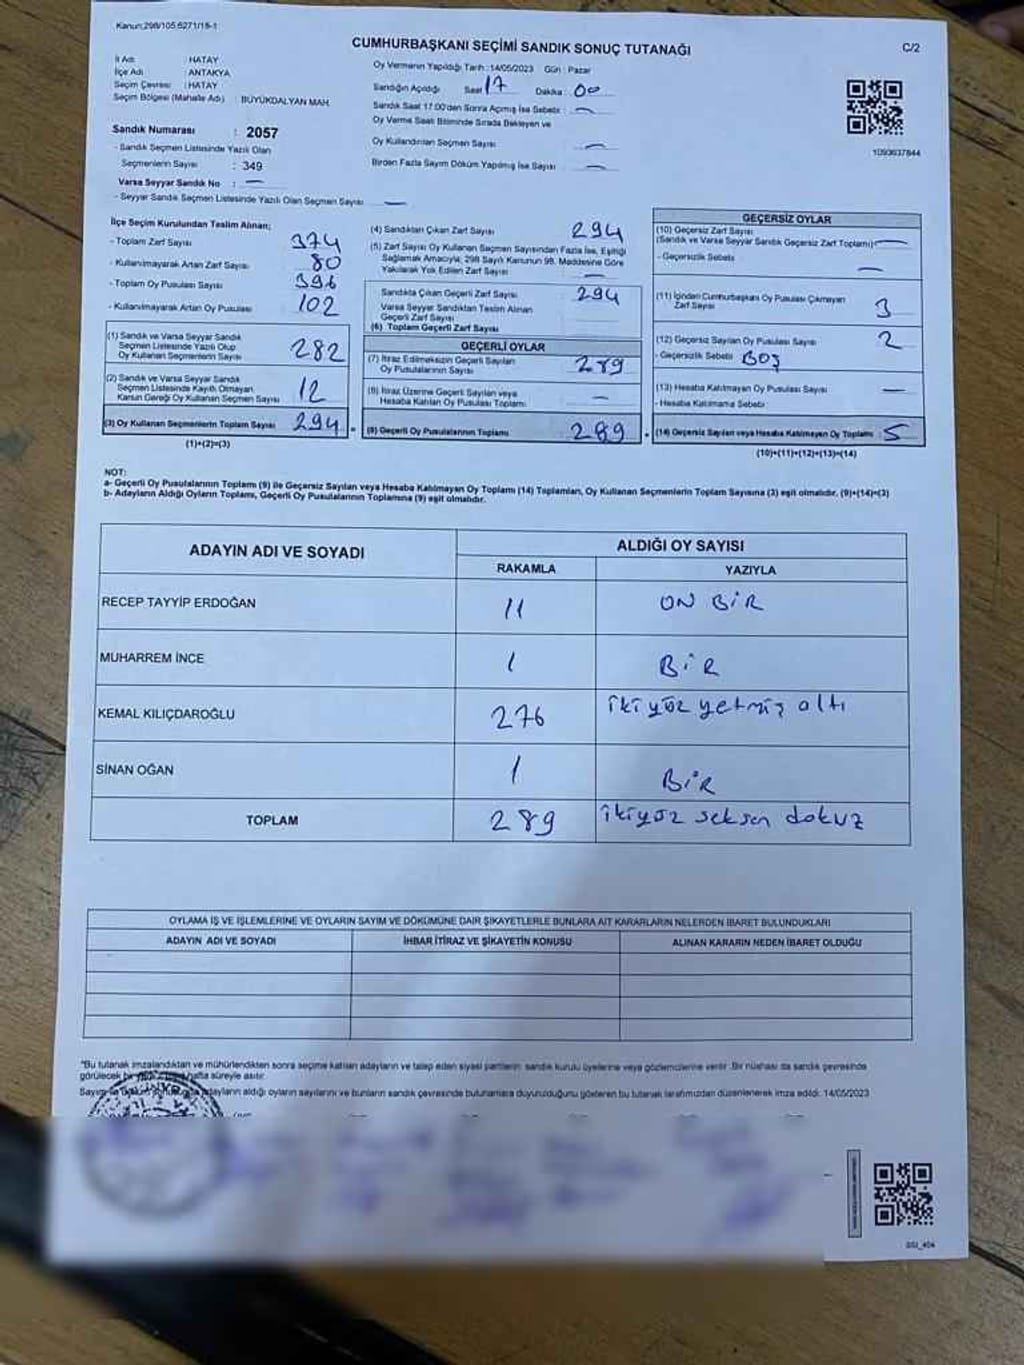 Kanun;298/105,6271/15-1
CUMHURBAŞKANI SEÇİMİ SANDIK SONUÇ TUTANAĞI
C/2
İl Adı : HATAY
İlçe Adı : ANTAKYA
Seçim Çevresi : HATAY
Seçim Bölgesi (Mahalle Adı) : BÜYÜKDALYAN MAH.
Sandık Numarası : 2057
- Sandık Seçmen Listesinde Yazılı Olan
Seçmenlerin Sayısı : 349
Varsa Seyyar Sandık No : —
- Seyyar Sandık Seçmen Listesinde Yazılı Olan Seçmen Sayısı : —
Oy Vermenin Yapıldığı Tarih : 14/05/2023 Gün : Pazar
Sandığın Açıldığı Saat 17 Dakika : 00
Sandık Saat 17.00'den Sonra Açılmış İse Sebebi : —
Oy Verme Saati Bitiminde Sırada Bekleyen ve
Oy Kullandırılan Seçmen Sayısı —
Birden Fazla Sayım Döküm Yapılmış İse Sayısı : —
1093637844
İlçe Seçim Kurulundan Teslim Alınan;
- Toplam Zarf Sayısı 374
- Kullanılmayarak Artan Zarf Sayısı 80
- Toplam Oy Pusulası Sayısı 396
- Kullanılmayarak Artan Oy Pusulası 102
(1) Sandık ve Varsa Seyyar Sandık
Seçmen Listesinde Yazılı Olup
Oy Kullanan Seçmenlerin Sayısı 282
(2) Sandık ve Varsa Seyyar Sandık
Seçmen Listesinde Kayıtlı Olmayan
Kanun Gereği Oy Kullanan Seçmen Sayısı 12
(3) Oy Kullanan Seçmenlerin Toplam Sayısı 294
(1)+(2)=(3)
(4) Sandıktan Çıkan Zarf Sayısı 294
(5) Zarf Sayısı Oy Kullanan Seçmen Sayısından Fazla İse, Eşitliği
Sağlamak Amacıyla; 298 Sayılı Kanunun 98. Maddesine Göre
Yakılarak Yok Edilen Zarf Sayısı —
Sandıkta Çıkan Geçerli Zarf Sayısı 294
Varsa Seyyar Sandıktan Teslim Alınan
Geçerli Zarf Sayısı
(6) Toplam Geçerli Zarf Sayısı
GEÇERLİ OYLAR
(7) İtiraz Edilmeksizin Geçerli Sayılan
Oy Pusulalarının Sayısı 289
(8) İtiraz Üzerine Geçerli Sayılan veya
Hesaba Katılan Oy Pusulası Toplamı —
(9) Geçerli Oy Pusulalarının Toplamı 289
GEÇERSİZ OYLAR
(10) Geçersiz Zarf Sayısı
(Sandık ve Varsa Seyyar Sandık Geçersiz Zarf Toplamı) —
- Geçersizlik Sebebi —
(11) İçinden Cumhurbaşkanı Oy Pusulası Çıkmayan
Zarf Sayısı 3
(12) Geçersiz Sayılan Oy Pusulası Sayısı 2
- Geçersizlik Sebebi BOŞ
(13) Hesaba Katılmayan Oy Pusulası Sayısı —
- Hesaba Katılmama Sebebi
(14) Geçersiz Sayılan veya Hesaba Katılmayan Oy Toplamı : 5
(10)+(11)+(12)+(13)=(14)
NOT:
a- Geçerli Oy Pusulalarının Toplamı (9) ile Geçersiz Sayılan veya Hesaba Katılmayan Oy Toplamı (14) Toplamları, Oy Kullanan Seçmenlerin Toplam Sayısına (3) eşit olmalıdır. (9)+(14)=(3)
b- Adayların Aldığı Oyların Toplamı, Geçerli Oy Pusulalarının Toplamına (9) eşit olmalıdır.
ADAYIN ADI VE SOYADI ALDIĞI OY SAYISI
RAKAMLA YAZIYLA
RECEP TAYYİP ERDOĞAN 11 ON BİR
MUHARREM İNCE 1 BİR
KEMAL KILIÇDAROĞLU 276 ikiyüz yetmiş altı
SİNAN OĞAN 1 BİR
TOPLAM 289 ikiyüz seksen dokuz
OYLAMA İŞ VE İŞLEMLERİNE VE OYLARIN SAYIM VE DÖKÜMÜNE DAİR ŞİKAYETLERLE BUNLARA AİT KARARLARIN NELERDEN İBARET BULUNDUKLARI
ADAYIN ADI VE SOYADI İHBAR İTİRAZ VE ŞİKAYETİN KONUSU ALINAN KARARIN NEDEN İBARET OLDUĞU
*Bu tutanak imzalandıktan ve mühürlendikten sonra seçime katılan adayların ve talep eden siyasi partilerin sandık kurulu üyelerine veya gözlemcilerine verilir. Bir nüshası da sandık çevresinde
görülecek bir hafta süreyle asılır.
adayların aldığı oyların sayılarını ve bunların sandık çevresinde bulunanlara duyurulduğunu gösteren bu tutanak tarafımızdan düzenlenerek imza edildi. 14/05/2023